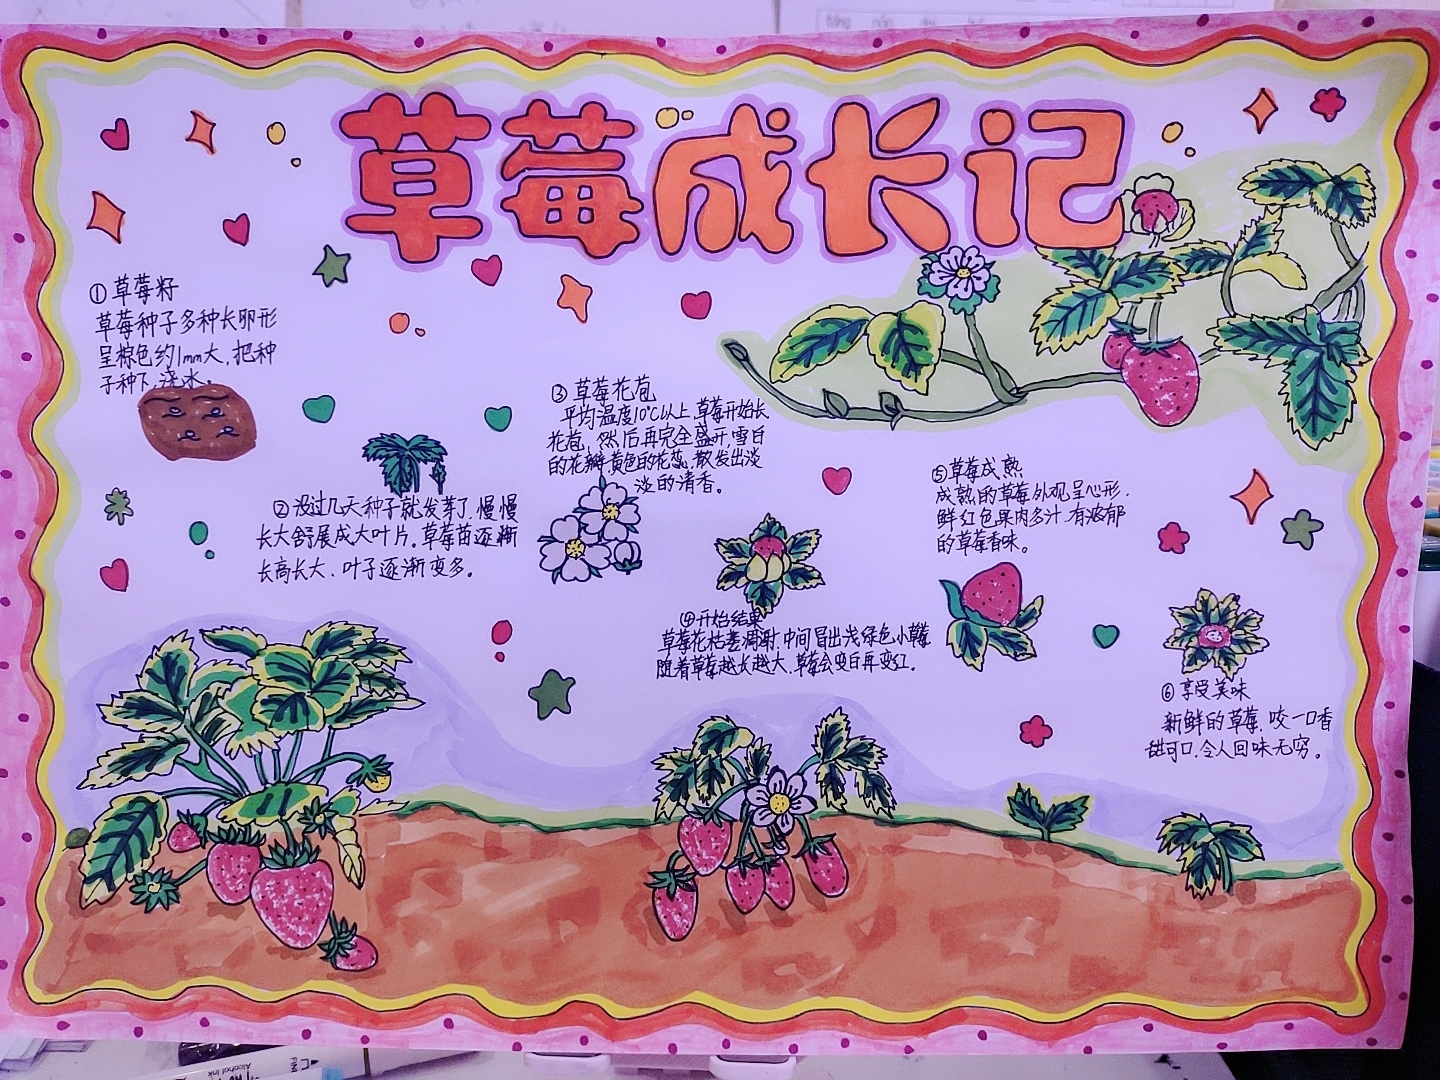 草莓成长记
①草莓籽
草莓种子多种长卵形
呈棕色约1mm大,把种
子种下,浇水。
②没过几天种子就发芽了,慢慢
长大舒展成大叶片。草莓苗逐渐
长高长大、叶子逐渐变多。
③草莓花苞
平均温度10℃以上,草莓开始长
花苞,然后再完全盛开,雪白
的花瓣黄色的花蕊,散发出淡
淡的清香。
④开始结果
草莓花枯萎凋谢,中间冒出浅绿色小草莓
随着草莓越长越大,草莓会变白再变红。
⑤草莓成熟
成熟的草莓外观呈心形,
鲜红色果肉多汁,有浓郁
的草莓香味。
⑥享受美味
新鲜的草莓,咬一口香
甜可口,令人回味无穷。
Alcohol Ink